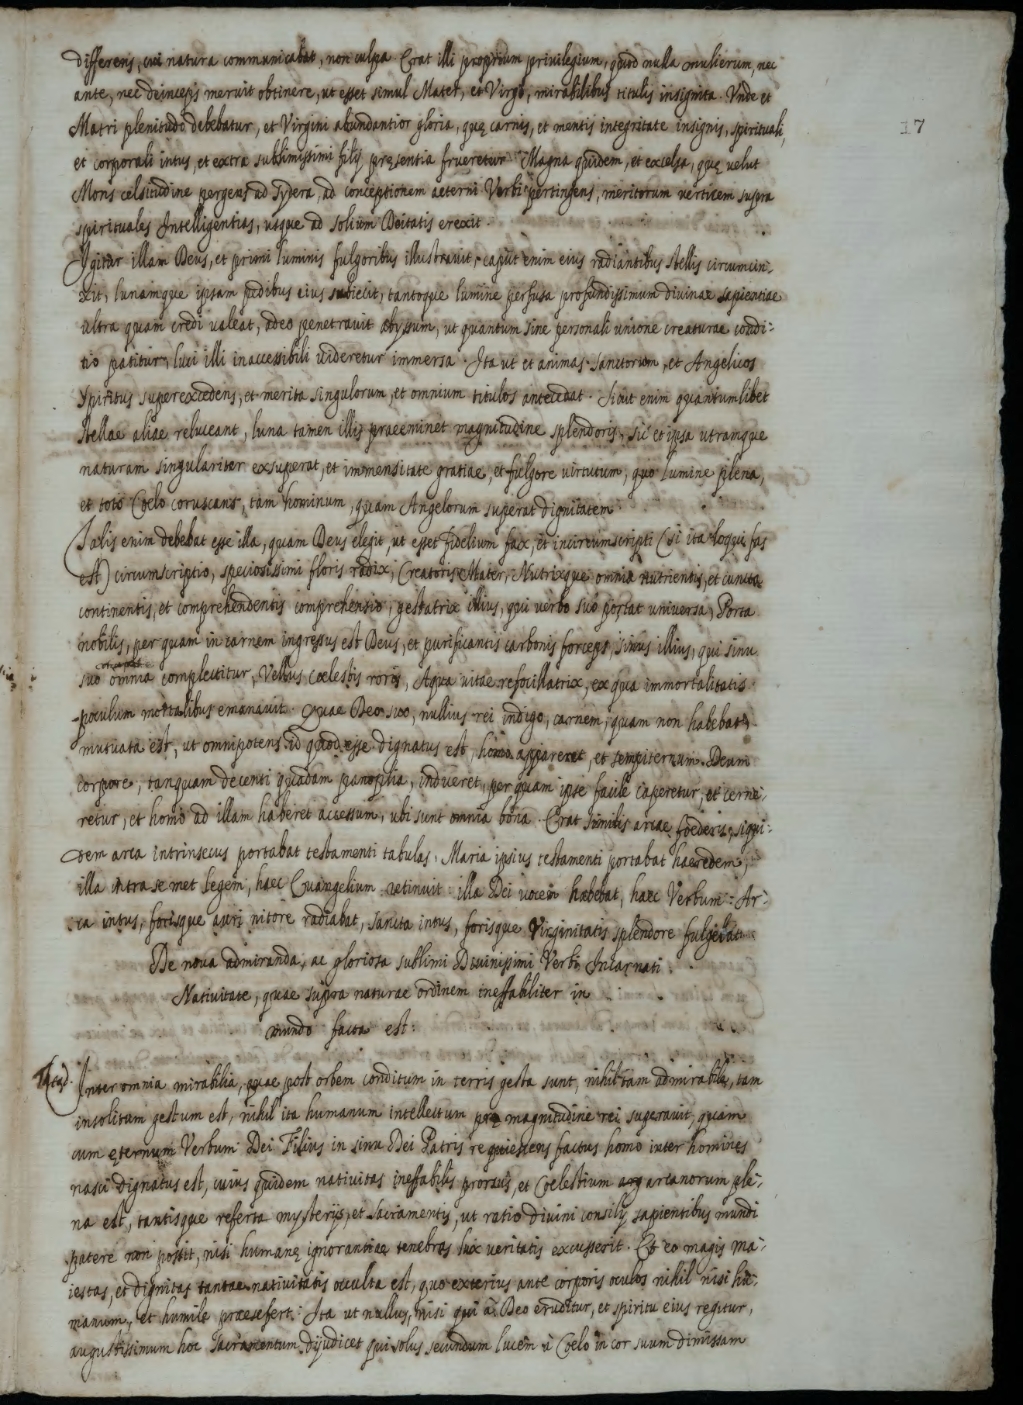 differens, cui natura communicabat, non culpa. Erat illi proprium privilegium, quod nulla mulierum, nec
ante, nec deinceps meruit obtinere, ut esset simul Mater, et Virgo, mirabilibus titulis insignita. Unde et
Matri plenitudo debebatur, et Virgini abundantior gloria, quę carnis, et mentis integritate insignis, spirituali,
17
et corporali intus, et extra sublimissimi filij pręsentia frueretur. Magna quidem, et excelsa, quę velut
Mons celsitudine pergens ad sydera, ad conceptionem aeterni Verbi pertingens, meritorum verticem supra
spirituales Intelligentias, usque ad solium Deitatis erexit.
Igitur illam Deus, et primi luminis fulgoribus illustravit, caput enim eius radiantibus stellis circumcin-
xit, lunamque ipsam pedibus eius subiecit, tantoque lumine perfusa profundissimum divinae sapientiae
ultra quam credi valeat, adeo penetravit abyssum, ut quantum sine personali unione creaturae condi-
tio patitur, luci illi inaccessibili videretur immersa. Ita ut et animas sanctorum, et Angelicos
spiritus superexcedens, et merita singulorum, et omnium titulos antecedat. Sicut enim quantumlibet
stellae aliae reluceant, luna tamen illis praeeminet magnitudine splendoris, sic et ipsa utramque
naturam singulariter exsuperat, et immensitate gratiae, et fulgore virtutum, quo lumine plena,
et toto Coelo coruscans, tam hominum, quam Angelorum superat dignitatem.
Talis enim debebat esse illa, quam Deus elegit, ut esset fidelium fax, et incircumscripti (si ita loqui fas
est) circumscriptio, speciosissimi floris radix, Creatoris Mater, Nutrixque omnia nutrientis, et cuncta
continentis, et comprehendentis comprehensio, gestatrix illius, qui verbo suo portat universa, Porta
nobilis, per quam in carnem ingressus est Deus, et purificantis carbonis forceps, sinus illius, qui sinu
suo omnia complectitur, Vellus coelestis roris, Aqua vitae refocillatrix, ex qua immortalitatis
poculum mortalibus emanavit. Quae Deo suo, nullius rei indigo, carnem, quam non habebat,
mutuata est, ut omnipotens id quod esse dignatus est, homo appareret, et sempiternum Deum
corpore, tanquam decenti quadam panoplia, indueret, per quam ipse facile caperetur, et cerne-
retur, et homo ad illam haberet accessum, ubi sunt omnia bona. Erat similis arcae foederis, siqui-
dem arca intrinsecus portabat testamenti tabulas, Maria ipsius testamenti portabat haeredem,
illa intra semet legem, haec Evangelium retinuit: illa Dei vocem habebat, haec Verbum: Ar-
ca intus, forisque auri nitore radiabat, sancta intus, forisque Virginitatis splendore fulgebat
De nova admiranda, ac gloriosa sublimi Divinissimi Verbi Incarnati
Nativitate, quae supra naturae ordinem ineffabiliter in
mundo facta est:
Inter omnia mirabilia, quae post orbem conditum in terris gesta sunt, nihil tam admirabile, tam
insolitum gestum est, nihil ita humanum intellectum prę magnitudine rei superavit, quam
cum ęternum Verbum Dei Filius in sinu Dei Patris requiescens factus homo inter homines
nasci dignatus est, cuius quidem nativitas ineffabilis prorsus, et Coelestium arcanorum ple-
na est, tantisque referta mysterijs, et Sacramentis, ut ratio divini consilij sapientibus mundi
patere non possit, nisi humanę ignorantiae tenebras lux veritatis excusserit. Et eo magis ma-
iestas, et dignitas tantae nativitatis occulta est, quo exterius ante corporis oculos nihil nisi hu-
manum, et humile praesefert. Ita ut nullus, nisi qui a Deo eruditur, et spiritu eius regitur,
augustissimum hoc Sacramentum dijudicet qui solus secundum lucem e Coelo in cor suum dimissam